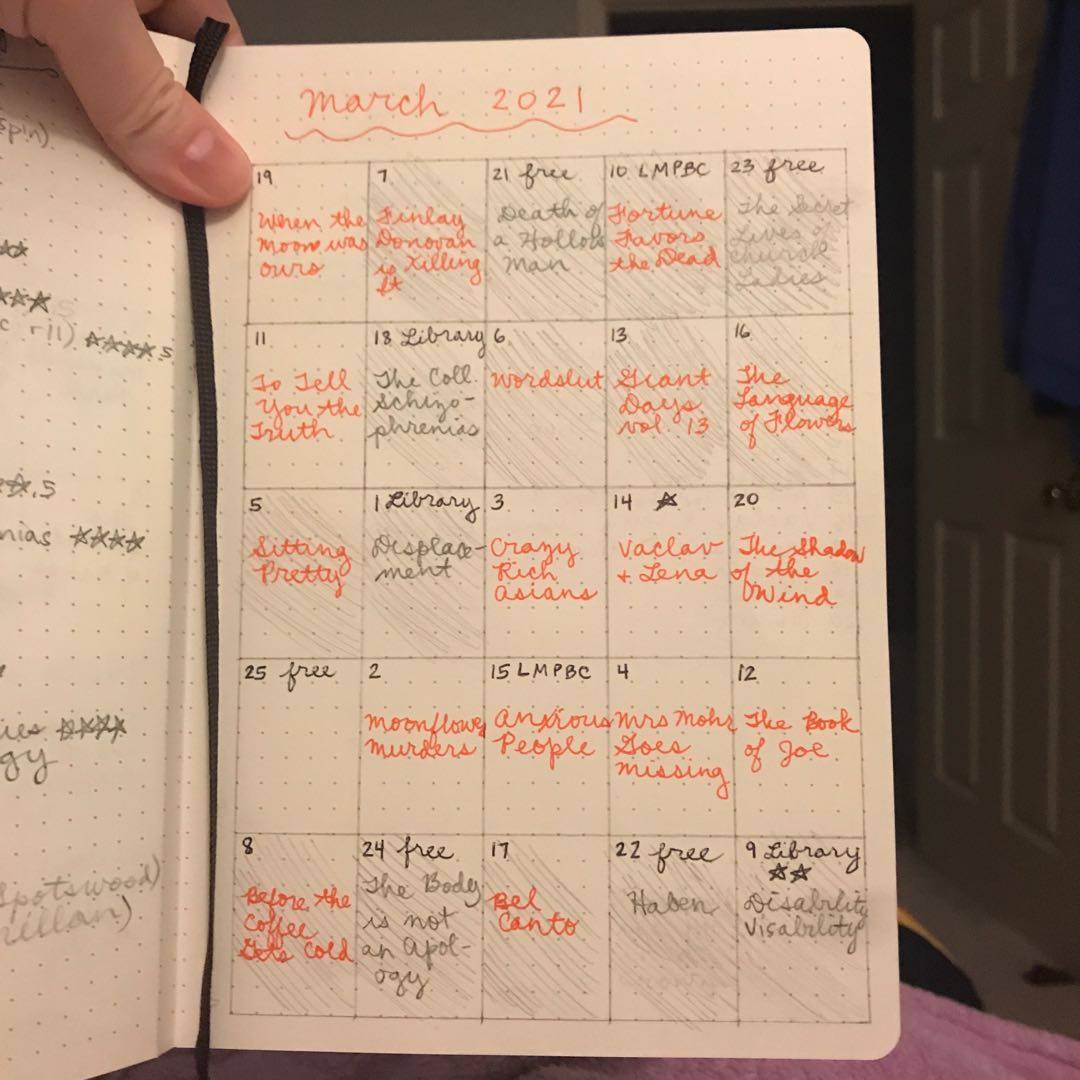 March 2021
19
When the
Moon was
ours
7
Finlay
Donovan
is Killing
It
21 free
Death of
a Hollow
Man
10 LMPBC
Fortune
Favors
the Dead
23 free
The Secret
Lives of
Church
Ladies
11
To Tell
You the
Truth
18 Library
The Coll.
Schizo-
phrenias
6
Wordslut
13
Giant
Days
vol 13
16
The
Language
of Flowers
5
Sitting
Pretty
1 Library
Displace-
ment
3
Crazy
Rich
Asians
14 ☆
Vaclav
+ Lena
20
The Shadow
of the
Wind
25 free
2
Moonflower
Murders
15 LMPBC
Anxious
People
4
Mrs Mohr
Goes
Missing
12
The Book
of Joe
8
Before the
Coffee
Gets Cold
24 free
The Body
is not
an Apol-
ogy
17
Bel
Canto
22 free
Haben
9 Library
☆☆
Disability
Visability
spin)
☆☆
☆☆☆
ril) ☆☆☆☆.5
☆.5
nias ☆☆☆☆
ies ☆☆☆☆
gy
Spotswood)
millan)